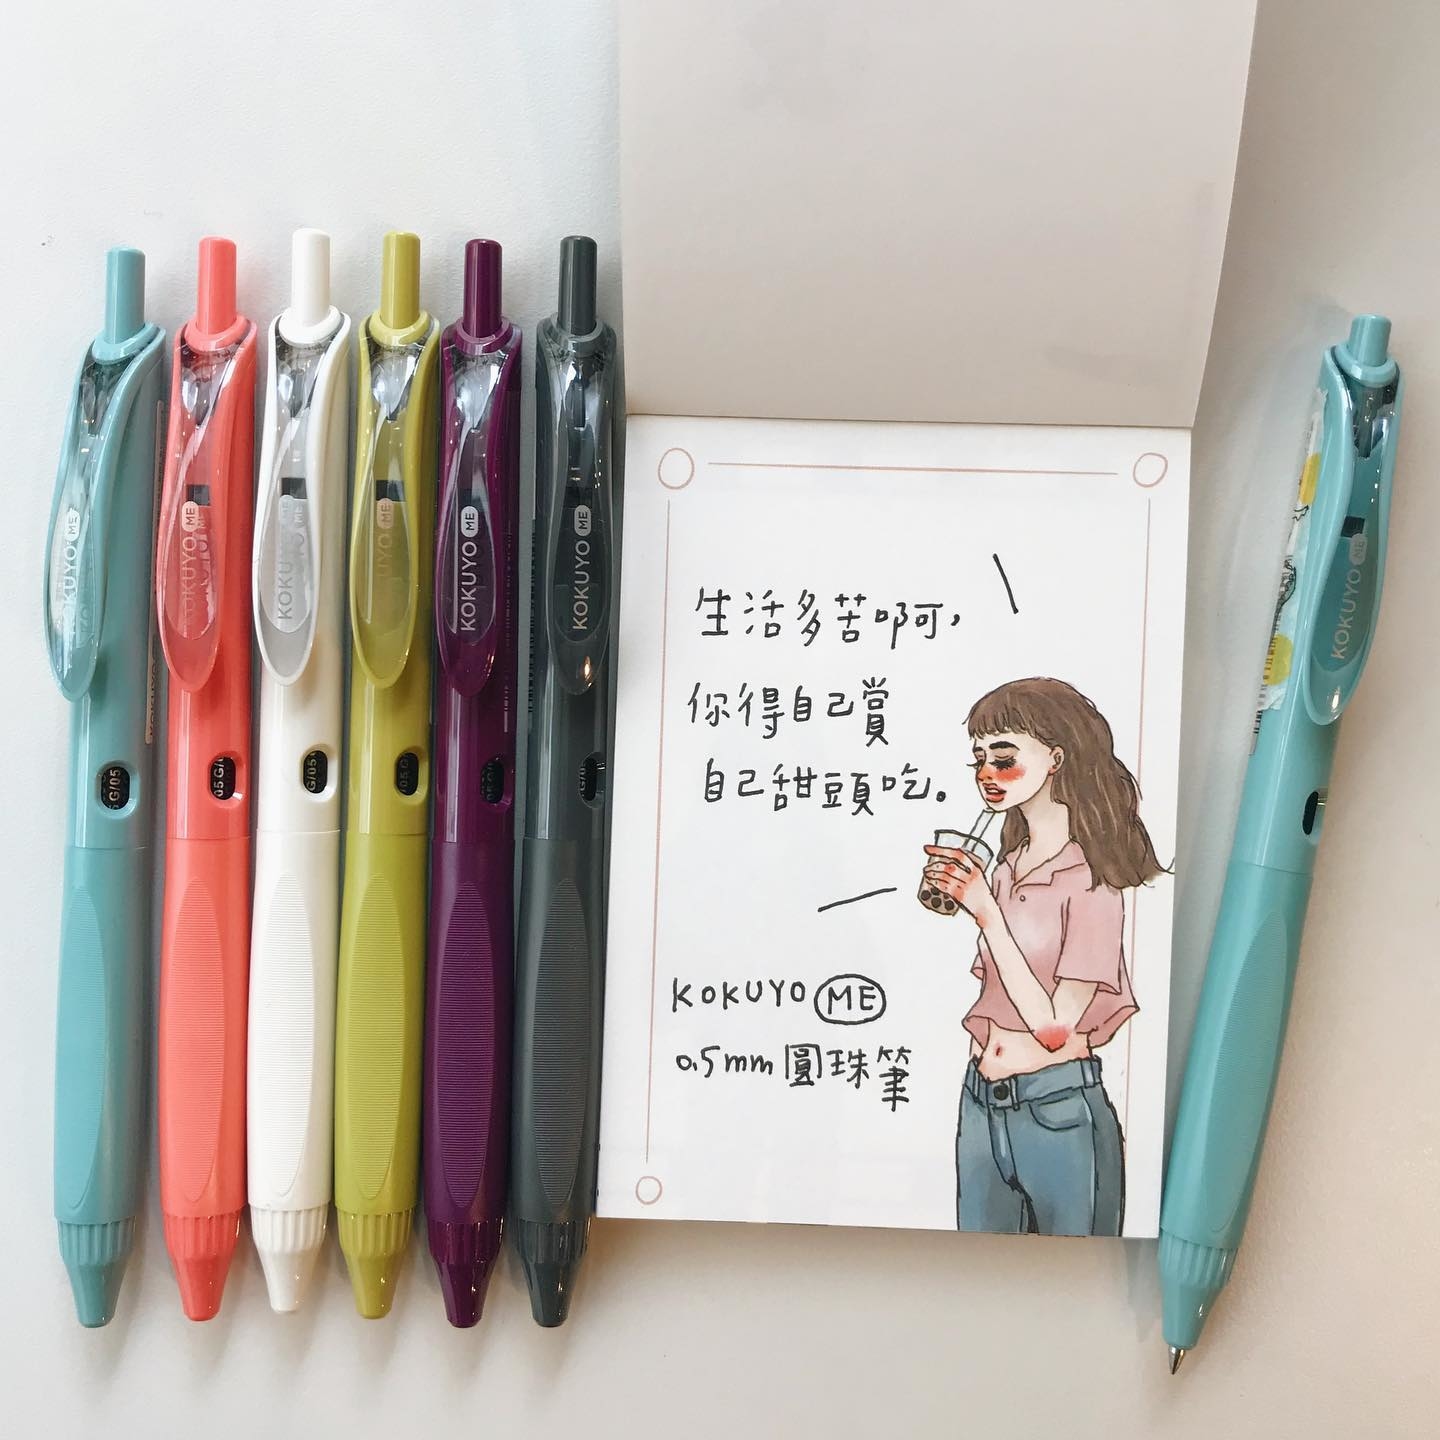 KOKUYO ME
KOKUYO ME
KOKUYO ME
KOKUYO ME
KOKUYO ME
KOKUYO ME
G/05
05G/
G/05
05G
生活多苦啊,
你得自己賞
自己甜頭吃。
KOKUYO ME
0.5mm圓珠筆
KOKUYO ME